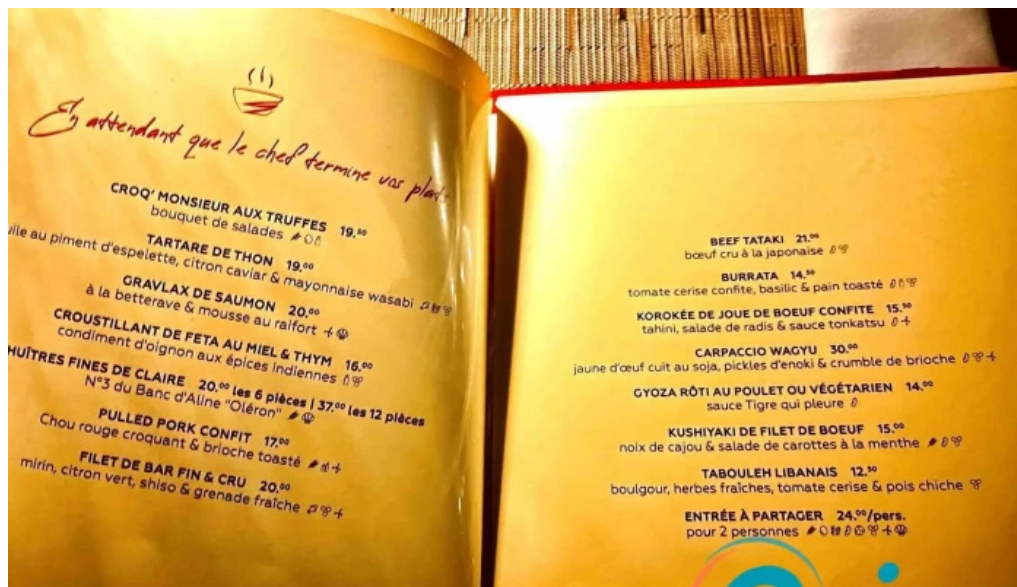 En attendant que le chef termine vos plats
CROQ' MONSIEUR AUX TRUFFES 19.50
bouquet de salades
TARTARE DE THON 19.00
au piment d'espelette, citron caviar & mayonnaise wasabi
GRAVLAX DE SAUMON 20.00
à la betterave & mousse au raifort
CROUSTILLANT DE FETA AU MIEL & THYM 16.00
condiment d'oignon aux épices indiennes
HUÎTRES FINES DE CLAIRE 20.00 les 6 pièces | 37.00 les 12 pièces
N°3 du Banc d'Aline "Oléron"
PULLED PORK CONFIT 17.00
Chou rouge croquant & brioche toasté
FILET DE BAR FIN & CRU 20.00
mirin, citron vert, shiso & grenade fraîche
BEEF TATAKI 21.00
bœuf cru à la japonaise
BURRATA 14.50
tomate cerise confite, basilic & pain toasté
KOROKÉE DE JOUE DE BOEUF CONFITE 15.50
tahini, salade de radis & sauce tonkatsu
CARPACCIO WAGYU 30.00
jaune d'œuf cuit au soja, pickles d'enoki & crumble de brioche
GYOZA RÔTI AU POULET OU VÉGÉTARIEN 14.00
sauce Tigre qui pleure
KUSHIYAKI DE FILET DE BOEUF 15.00
noix de cajou & salade de carottes à la menthe
TABOULEH LIBANAIS 12.50
boulgour, herbes fraîches, tomate cerise & pois chiche
ENTRÉE À PARTAGER 24.00/pers.
pour 2 personnes